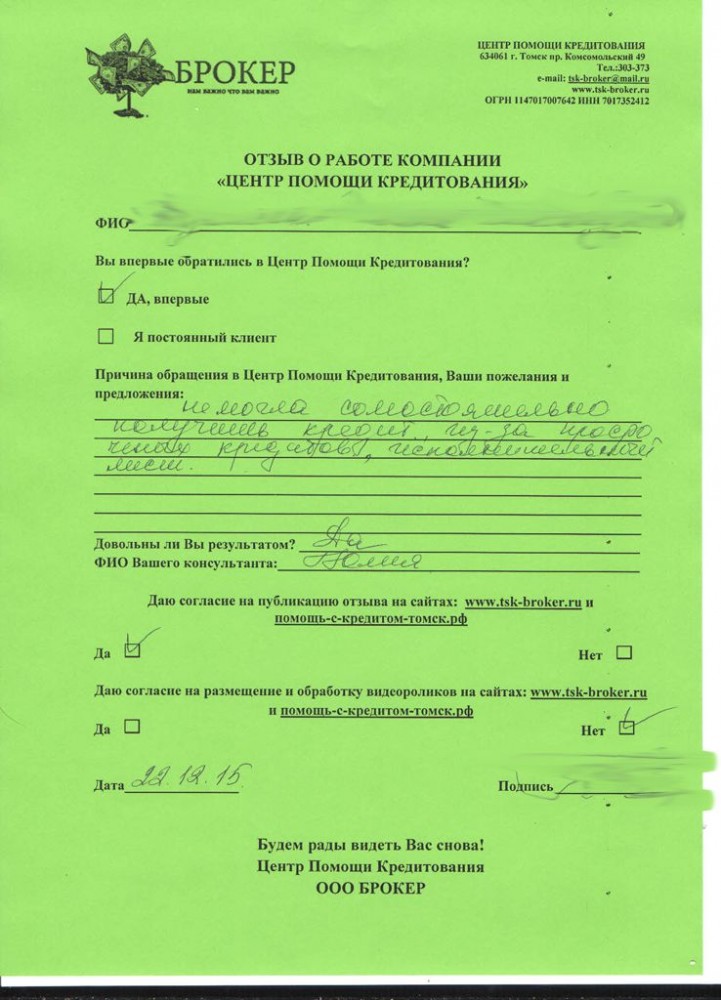 БРОКЕР
нам важно что вам важно
ЦЕНТР ПОМОЩИ КРЕДИТОВАНИЯ
634061 г. Томск пр. Комсомольский 49
Тел.:303-373
e-mail: tsk-broker@mail.ru
www.tsk-broker.ru
ОГРН 1147017007642 ИНН 7017352412
ОТЗЫВ О РАБОТЕ КОМПАНИИ
«ЦЕНТР ПОМОЩИ КРЕДИТОВАНИЯ»
ФИО
Вы впервые обратились в Центр Помощи Кредитования?
ДА, впервые
Я постоянный клиент
Причина обращения в Центр Помощи Кредитования, Ваши пожелания и
предложения:
не могла самостоятельно
получить кредит, из-за просро
ченых кридитов, исполнительный
лист.
Довольны ли Вы результатом? Да
ФИО Вашего консультанта: Юлия
Даю согласие на публикацию отзыва на сайтах: www.tsk-broker.ru и
помощь-с-кредитом-томск.рф
Да Нет
Даю согласие на размещение и обработку видеороликов на сайтах: www.tsk-broker.ru
и помощь-с-кредитом-томск.рф
Да Нет
Дата 22.12.15 Подпись
Будем рады видеть Вас снова!
Центр Помощи Кредитования
ООО БРОКЕР